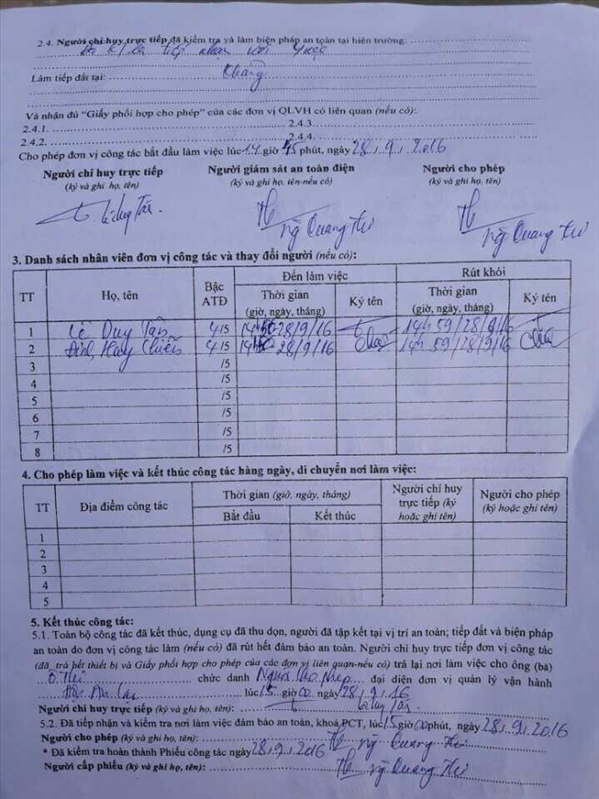 2.4. Người chỉ huy trực tiếp đã kiểm tra và làm biện pháp an toàn tại hiện trường:
tiếp
Làm tiếp đất tại: không
Và nhận đủ “Giấy phối hợp cho phép” của các đơn vị QLVH có liên quan (nếu có):
2.4.1. 2.4.3.
2.4.2. 2.4.4.
Cho phép đơn vị công tác bắt đầu làm việc lúc 14 giờ 45 phút, ngày 28, 9, 2016
Người chỉ huy trực tiếp Người giám sát an toàn điện Người cho phép
(ký và ghi họ, tên) (ký và ghi họ, tên-nếu có) (ký và ghi họ, tên)
Ng Quang Ng Quang
3. Danh sách nhân viên đơn vị công tác và thay đổi người (nếu có):
TT Họ, tên Bậc ATĐ Đến làm việc Rút khỏi
Thời gian (giờ, ngày, tháng) Ký tên Thời gian (giờ, ngày, tháng) Ký tên
1 Lê Duy Tân 4/5 28/9/16 14h 59/28/9/16
2 Đinh Huy Chiến 4/5 28/9/16 14h 59/28/9/16
3 /5
4 /5
5 /5
6 /5
7 /5
8 /5
4. Cho phép làm việc và kết thúc công tác hàng ngày, di chuyển nơi làm việc:
TT Địa điểm công tác Thời gian (giờ, ngày, tháng) Người chỉ huy trực tiếp (ký hoặc ghi tên) Người cho phép (ký hoặc ghi tên)
Bắt đầu Kết thúc
1
2
3
4
5
5. Kết thúc công tác:
5.1. Toàn bộ công tác đã kết thúc, dụng cụ đã thu dọn, người đã tập kết tại vị trí an toàn; tiếp đất và biện pháp
an toàn do đơn vị công tác làm (nếu có) đã rút hết đảm bảo an toàn. Người chỉ huy trực tiếp đơn vị công tác
(đã trả hết thiết bị và Giấy phối hợp cho phép của các đơn vị liên quan-nếu có) trả lại nơi làm việc cho ông (bà)
chức danh Người cho phép đại diện đơn vị quản lý vận hành
lúc 15 giờ 00 ngày 28, 9, 16
Người chỉ huy trực tiếp (ký và ghi họ, tên):
5.2. Đã tiếp nhận và kiểm tra nơi làm việc đảm bảo an toàn, khoá PCT, lúc 15 giờ 00 phút, ngày 28, 9, 2016
Người cho phép (ký và ghi họ, tên): Ng Quang
* Đã kiểm tra hoàn thành Phiếu công tác ngày 28, 9, 2016
Người cấp phiếu (ký và ghi họ, tên): Ng Quang